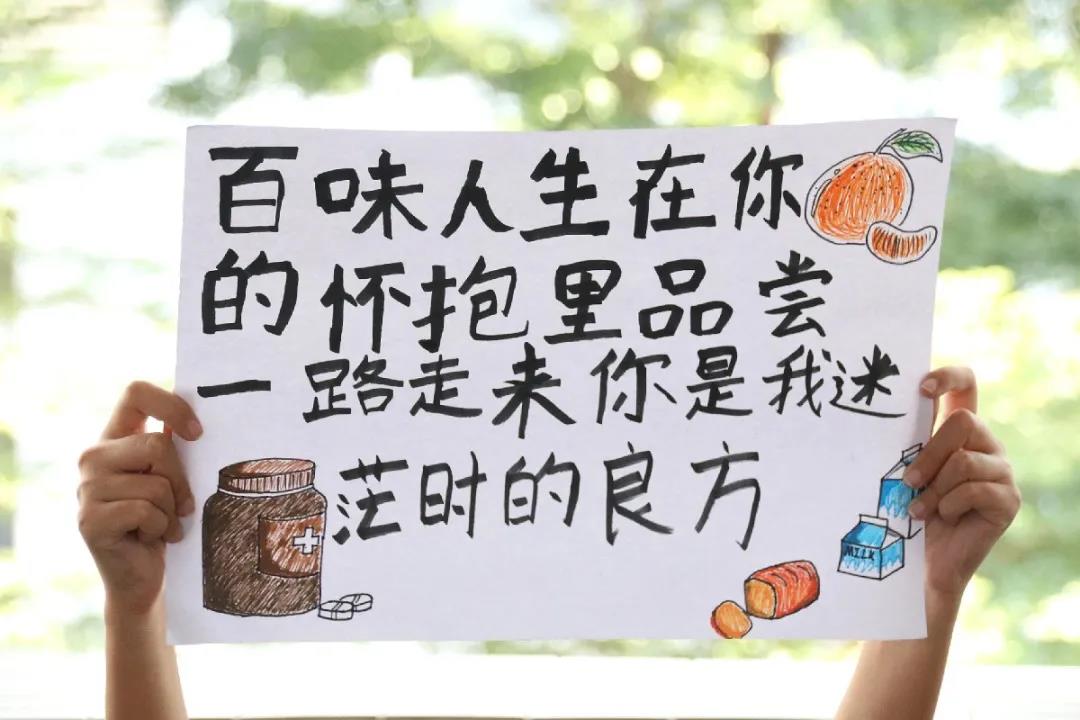 百味人生在你
的怀抱里品尝
一路走来你是我迷
茫时的良方
MILK